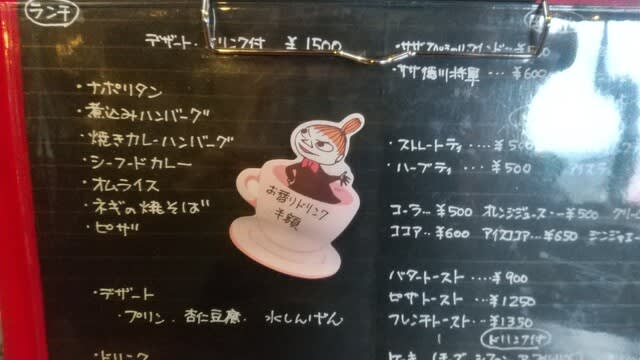 ランチ
デザート・ドリンク付 ¥1500
・ナポリタン
・煮込みハンバーグ
・焼きカレーハンバーグ
・シーフードカレー
・オムライス
・ネギの焼そば
・ピザ
お替りドリンク
半額
・デザート
・プリン . 杏仁豆腐 . 水しんげん
・ドリンク
・ササ
・ササ 徳川将軍 … ¥600
・ストレートティ …… ¥500
・ハーブティ …… ¥500
コーラ… ¥500 オレンジジュース…¥500
ココア… ¥600 アイスココア… ¥650 ジンジャエー
バタートースト …. ¥900
ピザトースト …. ¥1250
フレンチトースト …. ¥1350
ドリンク付
ケーキ